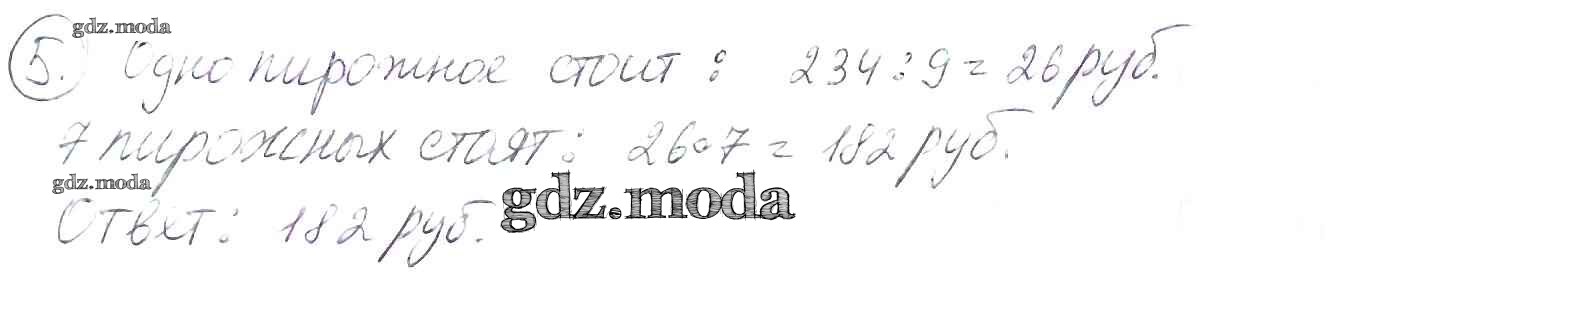 gdz.moda
5. Одно пирожное стоит : 234 : 9 = 26 руб.
7 пирожных стоят : 26 · 7 = 182 руб.
gdz.moda
gdz.moda
Ответ : 182 руб.